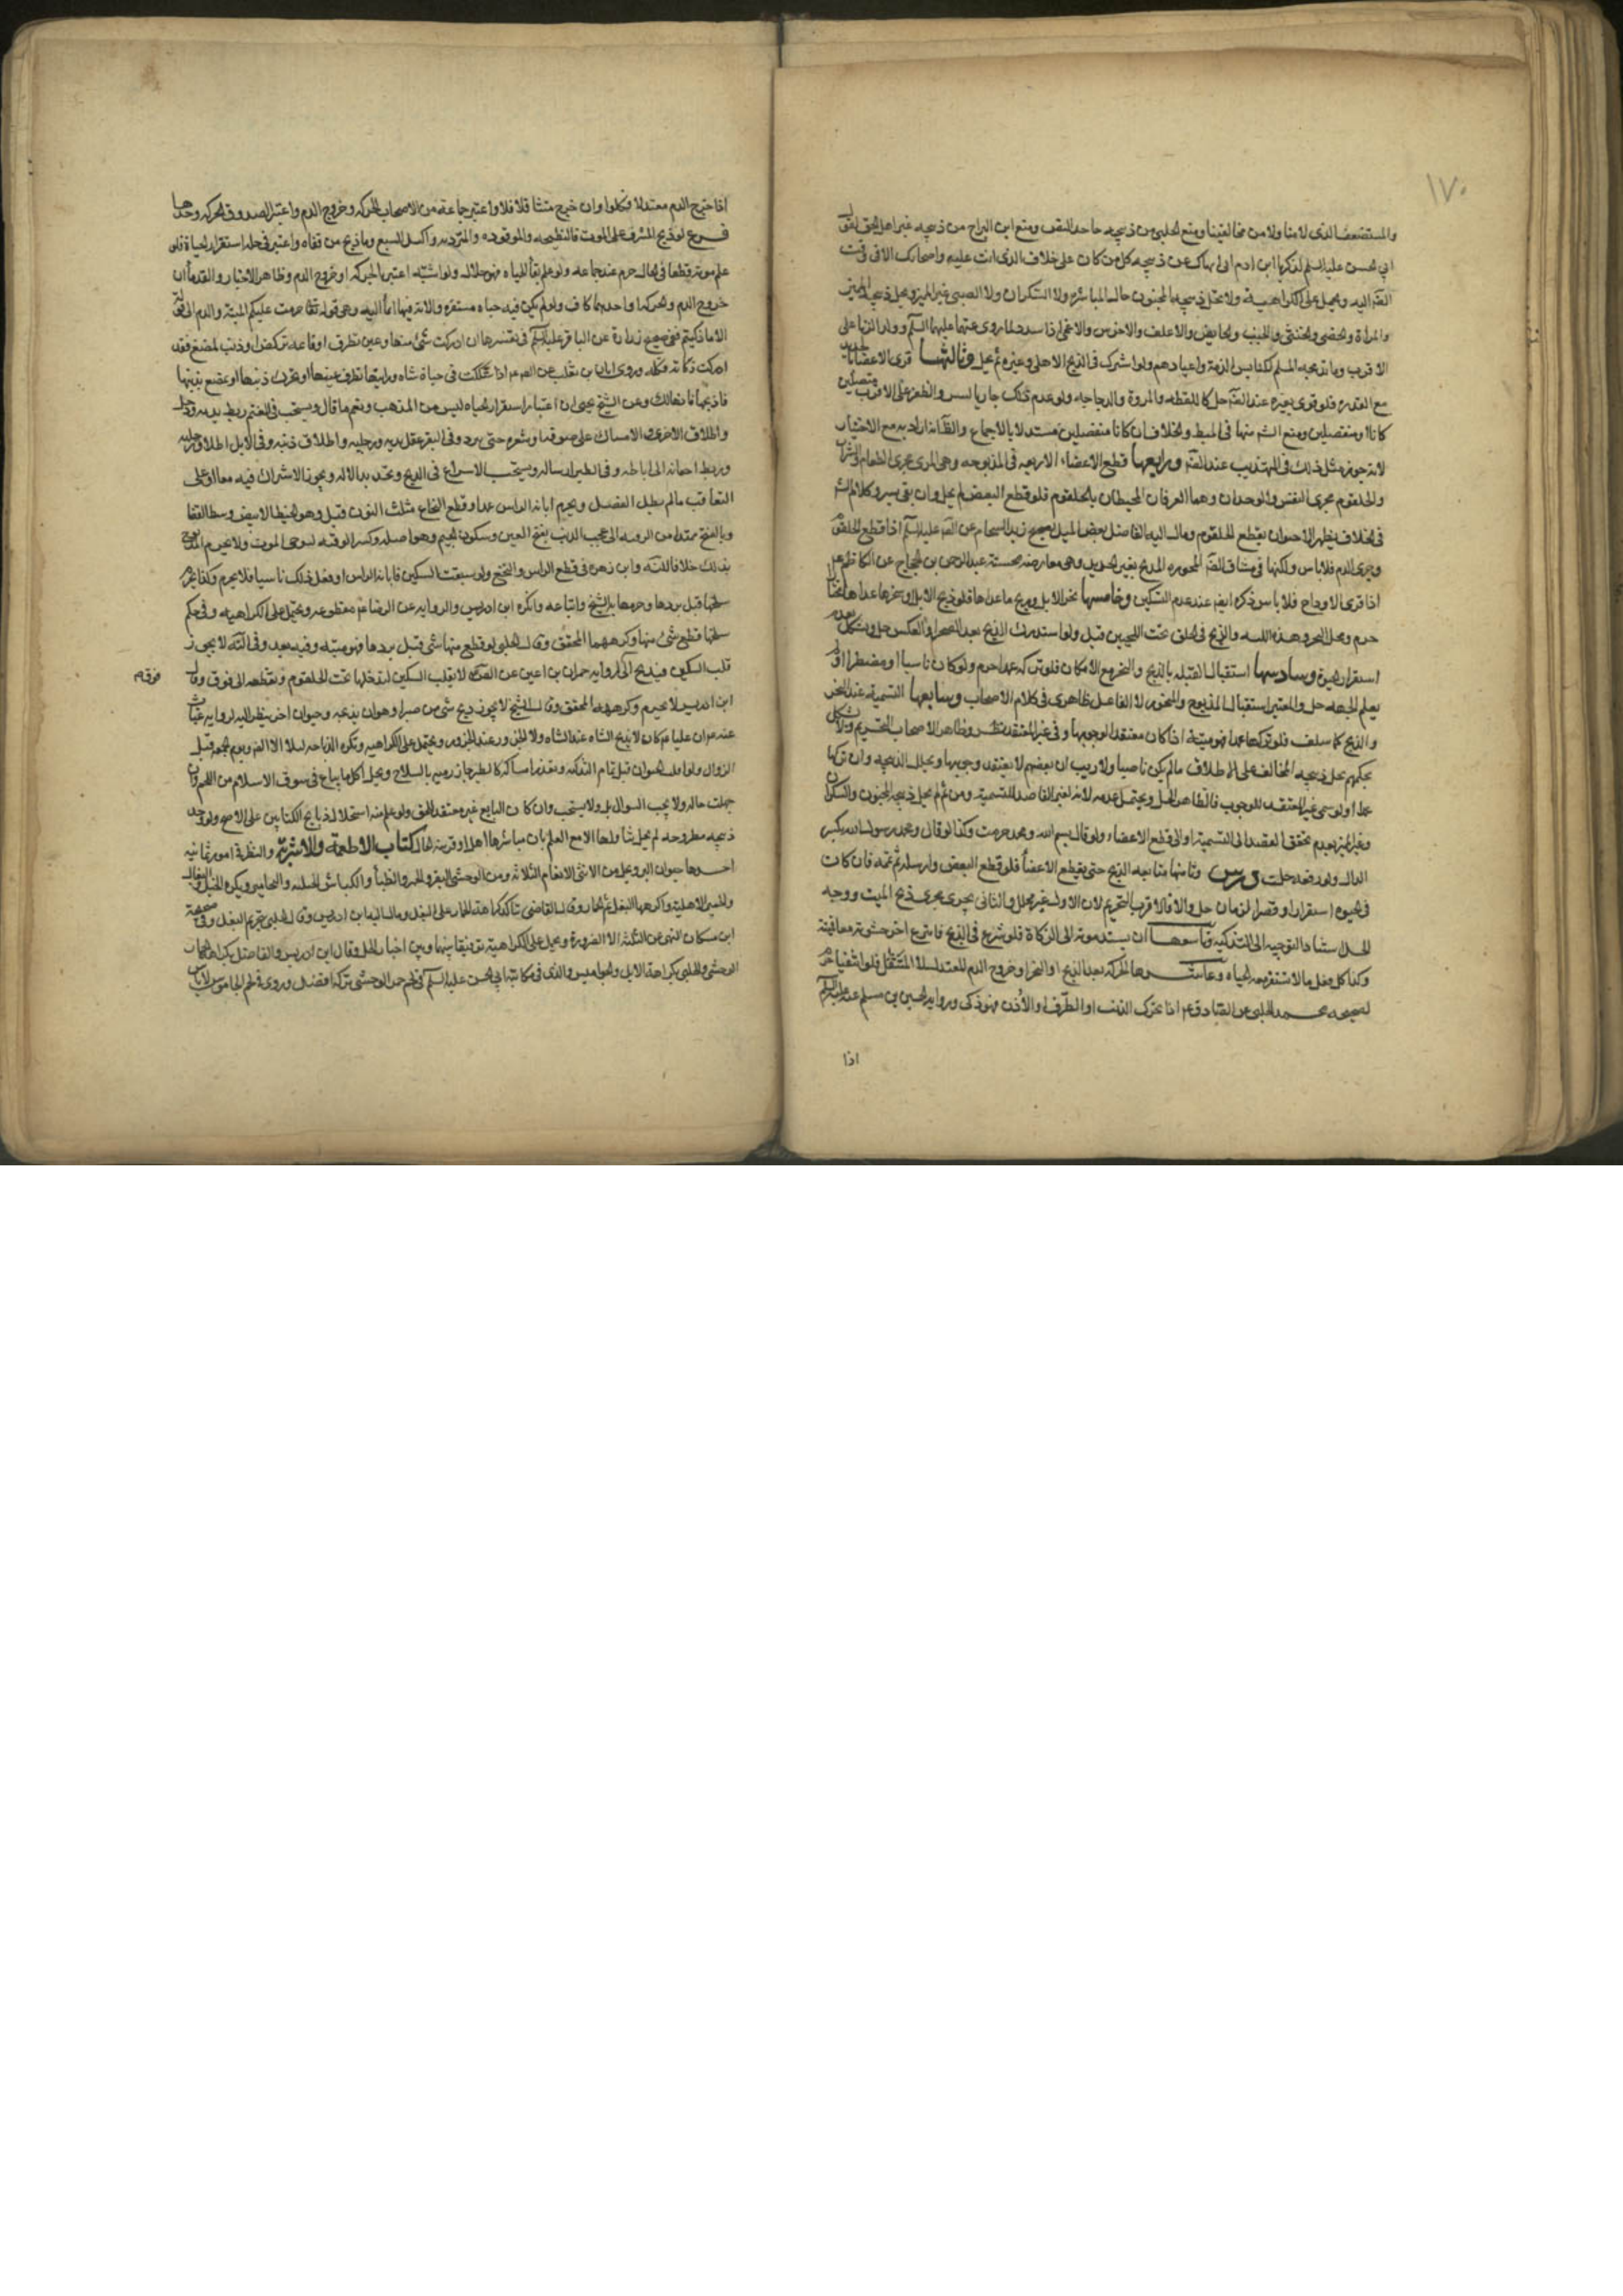 ١٧٠
والمستضعف الذي لا منا ولا من مخالفينا ومنع الحلبي من ذبيحه جاحد النص ومنع ابن البراج من ذبيحه غير اهل الحق لقول
ابي الحسن عليه السلم لذكريا ابن ادم اني انهاك عن ذبيحه كل من كان على خلاف الذي انت عليه واصحابك الا في وقت
الضرورة اليه ويحمل على الكراهية ولا تحل ذبيحه المجنون حال المباشرة ولا السكران ولا الصبي غير المميز ويحل ذبيحه المميز
والمراة والخصي والخنثى والجنب والحايض والاغلف والاخرس والاعمى اذا سدد لما روى عنهما عليهما السلم وولد الزنا على
الاقرب وما يذبحه المسلم لكنايس الذمة واعيادهم ولو اشرك في الذبح الاهل وغيره لم يحل وثالثها فرى الاعضاء بالحديد
مع القدرة فلو فرى بغيره عند الضرورة حل كالليطة والمروة والزجاجه ولو عدم ذلك جاز بالسن والظفر على الاقرب متصلين
كانا او منفصلين ومنع الشيخ منها في المبسوط والخلاف ان كانا منفصلين مستدلا بالاجماع والظاهر انه اراد به مع الاختيار
لانه جوز مثل ذلك في التهذيب عند الضرورة ورابعها قطع الاعضاء الاربعه في المذبوحه وهي المرى مجرى الطعام والشراب
والحلقوم مجرى النفس والودجان وهما العرقان المحيطان بالحلقوم فلو قطع البعض لم يحل وان بقي يسير وكلام الشيخ
في الخلاف يظهر الاجتزاء بقطع الحلقوم ومال اليه الفاضل بعض الميل لصحيح زيد الشحام عن الصادق عليه السلم اذا قطع الحلقوم
وجرى الدم فلا باس ولكنها في سياق الضرورة المجوزه الذبح بغير الحديد وهي معارضه بحسنة عبد الرحمن بن الحجاج عن الكاظم
اذا فرى الاوداج فلا باس ذكره ايضا عند عدم السكين وخامسها نحر الابل وذبح ما عداها فلو ذبح الابل او نحر ما عداها مختارا
حرم ومحل النحر وهدة اللبة والذبح في الحلق تحت اللحيين قيل ولو استدرك الذبح بعد النحر او العكس حل ويشكل بعدم
استقرار الحيوة وسادسها استقبال القبله بالذبح والنحر مع الامكان فلو تركه عمدا حرم ولو كان ناسيا او مضطرا او لم
يعلم الجهة حل والمعتبر استقبال المذبوح والمنحور لا الفاعل في ظاهر كلام الاصحاب وسابعها التسمية عند النحر
والذبح كما سلف فلو تركها عمدا فهو ميتة اذا كان معتقدا لوجوبها وفي غير المعتقد نظر وظاهر الاصحاب التحريم ولكن يشكل
بحكمهم بحل ذبيحه المخالف على الاطلاق ما لم يكن ناصبيا ولا ريب ان بعضهم لا يعتقد وجوبها ويحلل الذبيحه وان تركها
عمدا ولو سمى غير المعتقد للوجوب فالظاهر الحل ويحتمل عدمه لانه كغير القاصد للتسمية ومن ثم لم يحل ذبيحه المجنون والسكران
وغير المميز لعدم تحقق القصد الى التسمية والى قطع الاعضاء ولو قال بسم الله ومحمد حرمت وكذا لو قال ومحمد رسول الله بكسر
الدال ولو رفعه حلت درس وثامنها متابعه الذبح حتى يقطع الاعضا فلو قطع البعض وارسله ثم تممه فان كانت
في الحيوه استقرار او قصر الزمان حل والا فالاقرب التحريم لان الاول غير محلل والثاني يجري مجرى ذبح الميت ووجه
الحل استناد التوجيه الى التذكيه وتاسعها ان يستند موته الى الذكاة فلو شرع في الذبح فانتزع اخر حشوته معا فميتة
وكذا كل فعل ما لا تستقر معه الحياه وعاشرها الحركه بعد الذبح او النحر او خروج الدم المعتدل لا المتثاقل فلو انتفيا حرم
لصحيحه محمد الحلبي عن الصادق ع اذا تحرك الذنب او الطرف او الاذن فهو ذكي ورواية الحسين بن مسلم عنه عليه السلم
اذا
اذا خرج الدم معتدلا فكلوا وان خرج متثاقلا فلا واعتبر جماعة من الاصحاب الحركه وخروج الدم واعتبر الصدوق الحركه وحدها
فرع لو ذبح المشرف على الموت كالنطيحه والموقوذه والمتردية واكيل السبع وما ذبح من قفاه واعتبر في حله استقرار الحياة فلو
علم موته قطعا في الحال حرم عند جماعه ولو علم بقاء الحياه فهو حلال ولو اشتبه اعتبر بالحركه او خروج الدم وظاهر الاخبار والقدماء ان
خروج الدم والحركه او احدهما كاف ولو لم يكن فيه حياه مستقره والاية فيها ايماء اليه وهي قوله تعالى حرمت عليكم الميتة والدم الى قوله
الا ما ذكيتم ففي صحيح زرارة عن الباقر عليه السلم في تفسيرها ان ادركت شئ منها وعين تطرف او قائمة تركض او ذنب يمصع فقد
ادركت ذكاته فكله وروى ابان بن تغلب عن الصادق ع اذا شككت في حياة شاه ورايتها تطرف عينها او تحرك ذنبها او تمصع بذنبها
فاذبحها فانها لك وعن الشيخ يحيى ان اعتبار استقرار الحياه ليس من المذهب ونعم ما قال ويستحب في الغنم ربط يديه ورجل
واطلاق الاخرى والامساك على صوفه او شعره حتى يبرد وفي البقر عقل يديه ورجليه واطلاق ذنبه وفي الابل اطلاق رجليه
وربط اخفافه الى اباطه وفي الطير ارساله ويستحب الاسراع في الذبح وتحديد الاله ويجوز الاشراك فيه معا او على
التعاقب ما لم يطل الفصل ويحرم ابانة الراس عمدا وقطع النخاع مثلث النون قيل وهو الخيط الابيض وسط القفا
وبالفتح ممتدا من الرقبه الى عجب الذنب بفتح العين وسكون الجيم وهو اصله وكسر الرقبه ليوحى الموت ولا يحرم المذبوح
بذلك خلافا للنهاية وابن زهره في قطع الراس والنخع ولو سبقت السكين فابانة الراس او فعل ذلك ناسيا فلا يحرم ولا
سلخها قبل بردها وحرمها الشيخ واتباعه وانكره ابن ادريس والرواية عن الرضا ع مقطوعه ويحتمل على الكراهيه وفي حكم
سلخها قطع شئ منها وكرههما المحقق وقال الحلبي لو قطع منها شئ قبل بردها فهو ميته وفيه بعد وفي النهاية لا يجوز
قلب السكين فيذبح الى فوق لرواية حمران بن اعين عن الصادق ع لا يقلب السكين ليدخلها تحت الحلقوم ويقطعه الى فوق وقال
فوق م
ابن ادريس لا يحرم وكرهه المحقق وقال الشيخ لا يجوز ذبح شئ من صبرا وهو ان يذبحه وحيوان اخر ينظر اليه لرواية غياث
عنه ع ان عليا ع كان لا يذبح الشاه عند الشاه ولا الجزور عند الجزور ويحتمل على الكراهيه وتكره الذباحه ليلا الا لضرورة ويوم الجمعه قبل
الزوال ولو افلت الحيوان قبل تمام التذكيه وتعذر امساكه كالطير جاز رميه بالسلاح ويحل اكل ما يباع في سوق الاسلام من اللحم وان
جهلت حاله ولا يجب السوال بل ولا يستحب وان كان البايع غير معتقد للحق ولو علم منه استحلال ذبايح الكتابين على الاصح ولو وجد
ذبيحه مطروحه لم يحل تناولها الا مع العلم بان مباشرها اهل او قرينة الحال كتاب الاطعمة والاشربة والنظر في امور ثمانيه
احدها حيوان البر ويحل من الانسي الانعام الثلاثه ومن الوحشي البقر والحمر والظباء والكباش الجبلية واليحامير ويكره الخيل والبغال
والحمير الاهلية واكرهها البغل ثم الحمار وقال القاضي تتاكد كراهة الحمار على البغل ومال اليه ابن ادريس وقال الحلبي بتحريم البغل وفي صحيحة
ابن مسكان النهي عن الثلثة الا لضرورة ويحمل على الكراهية توفيقا بينها وبين اخبار الحل وقال ابن ادريس والفاضل بكراهة الحمار
الوحشي والحلبي بكراهة الابل والجواميس والذي في مكاتبة ابي الحسن عليه السلم في لحم حمر الوحشي تركه افضل وروى في لحم الجاموس لا باس به